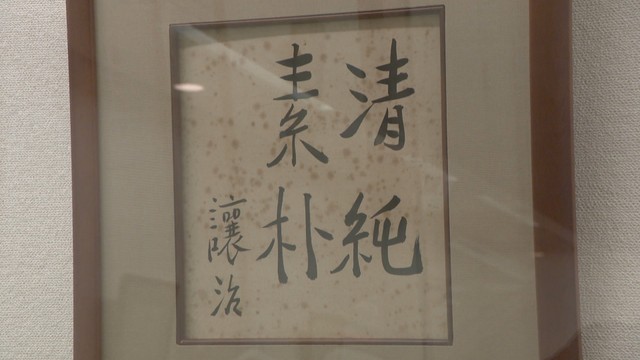 清純
素朴
瀼治